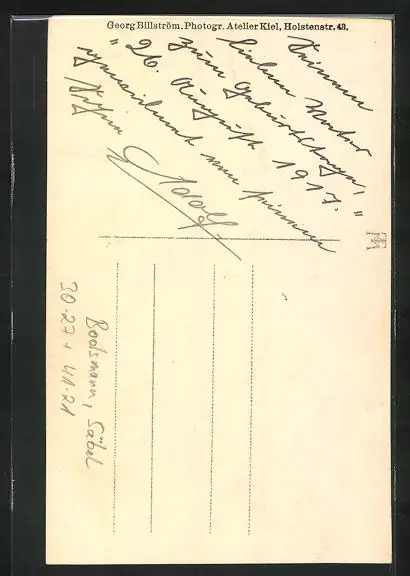 Georg Billström. Photogr. Atelier Kiel, Holstenstr. 43.
Seinem
lieben Vater
zum Geburtstage,
"26. August 1917."
gewidmet von seinem
Sohn Adolf.
Bootsmann, Säbel
30.27 + 41.21